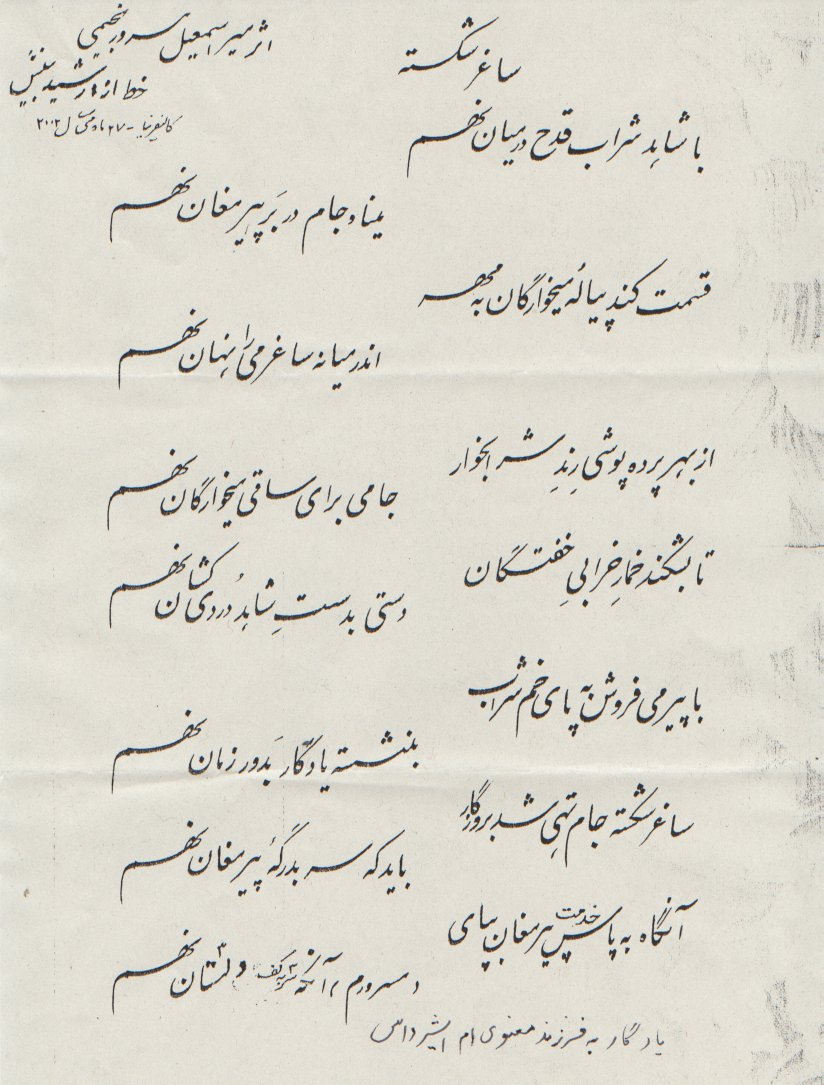 ساغر شکسته
اثر میر اسمعیل سرور نجیمی
خط از رشید بینش
کالیفرنیا - ۲۷ ماه می سال ۲۰۰۲
با شاهد شراب قدح در میان نهم
مینا و جام در بَر پیر مغان نهم
قسمت کند پیالهٔ میخوارگان به مهر
اندر میانه ساغر می را نهان نهم
از بهر پرده پوشی رِندِ شرابخوار
جامی برای ساقی میخوارگان نهم
تا بشکند خمارِ خرابیِ خفتگان
دستی بدستِ شاهدُ دردی کشان نهم
با پیر می فروش به پای خم شراب
بنشسته یادگار بَدور زمان نهم
ساغر شکسته جام تهی شد بروزگار
باید که سر بدرگهٔ پیر مغان نهم
آنگاه به پاس خدمت پیر مغان بپای
سرورم آئینه کف دلستان نهم
یادگار به فرزند معنوی ام ایشر داس